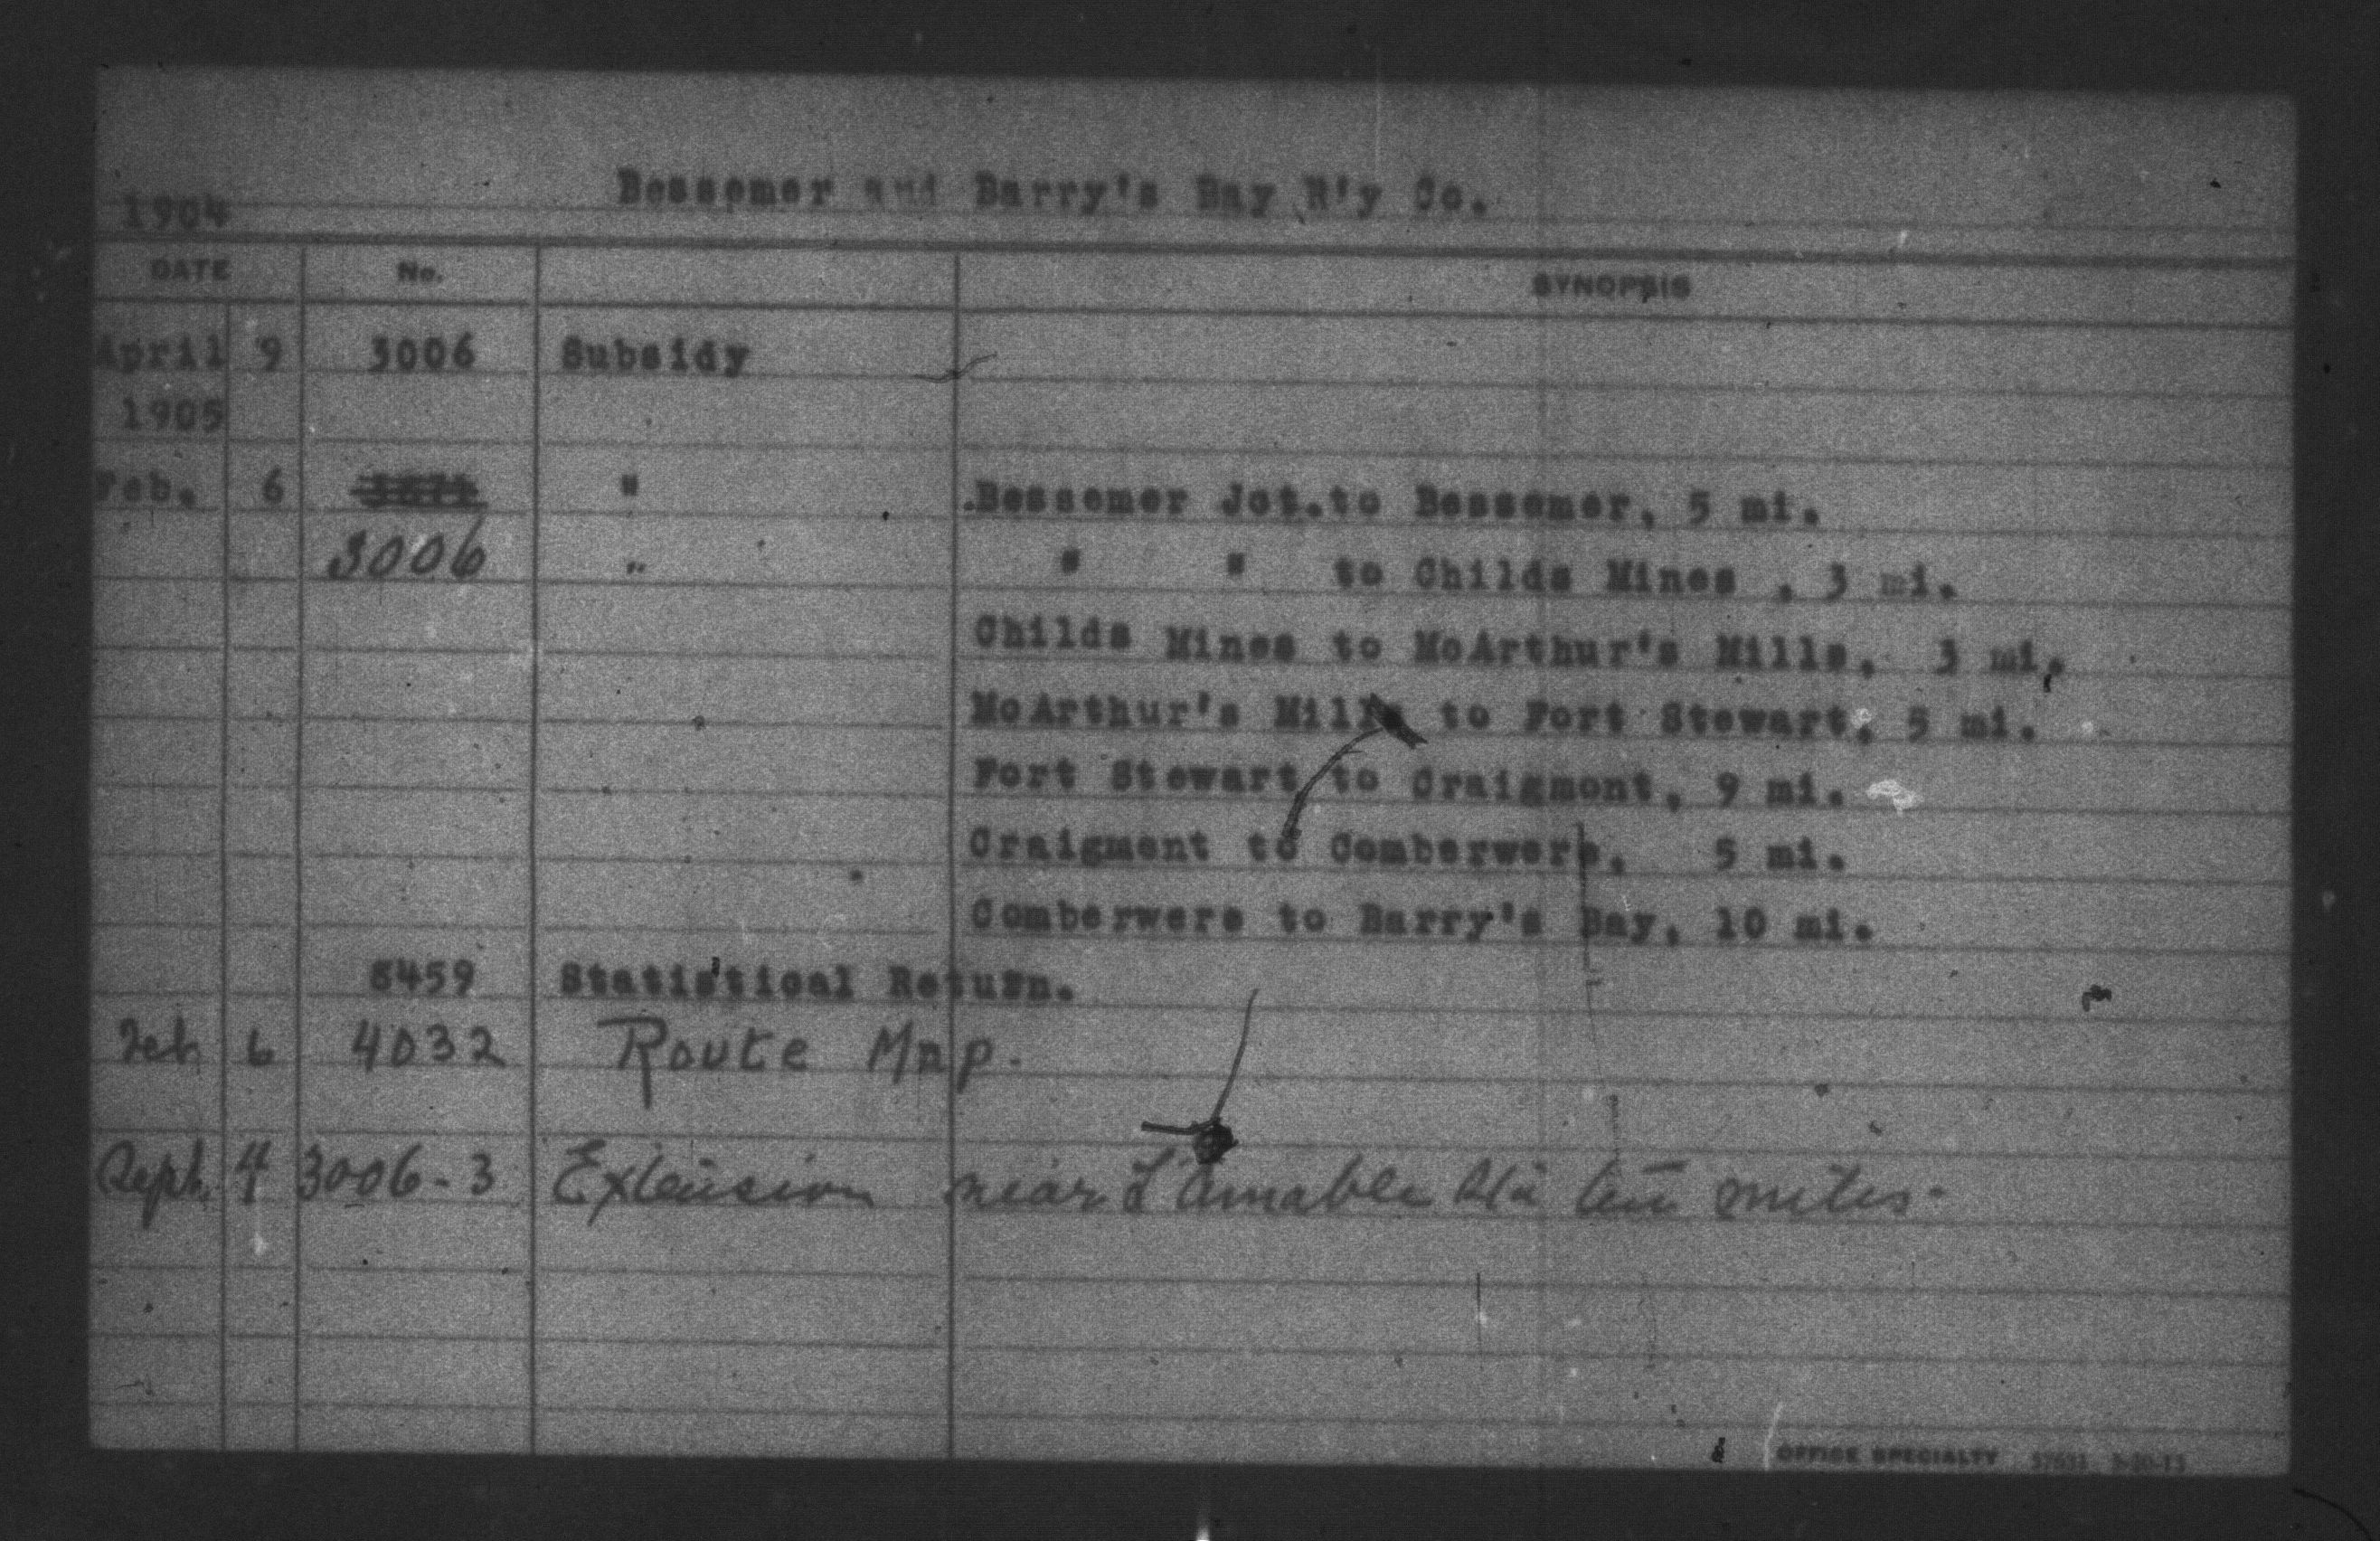 Bessemer and Barry's Bay R'y Co.
1904
DATE No. SYNOPSIS
April 9 3006 Subsidy
1905
Feb. 6 " .Bessemer Jct.to Bessemer, 5 mi.
3006 " " " to Childs Mines , 3 mi.
Childs Mines to McArthur's Mills, 3 mi.
McArthur's Mills to Fort Stewart, 5 mi.
Fort Stewart to Craigmont, 9 mi.
Craigmont to Comberwere, 5 mi.
Comberwere to Barry's Bay, 10 mi.
8459 Statistical Return.
Feb 6 4032 Route Map.
Sept. 4 3006-3 Extension near L'Amable ten miles.
OFFICE SPECIALTY